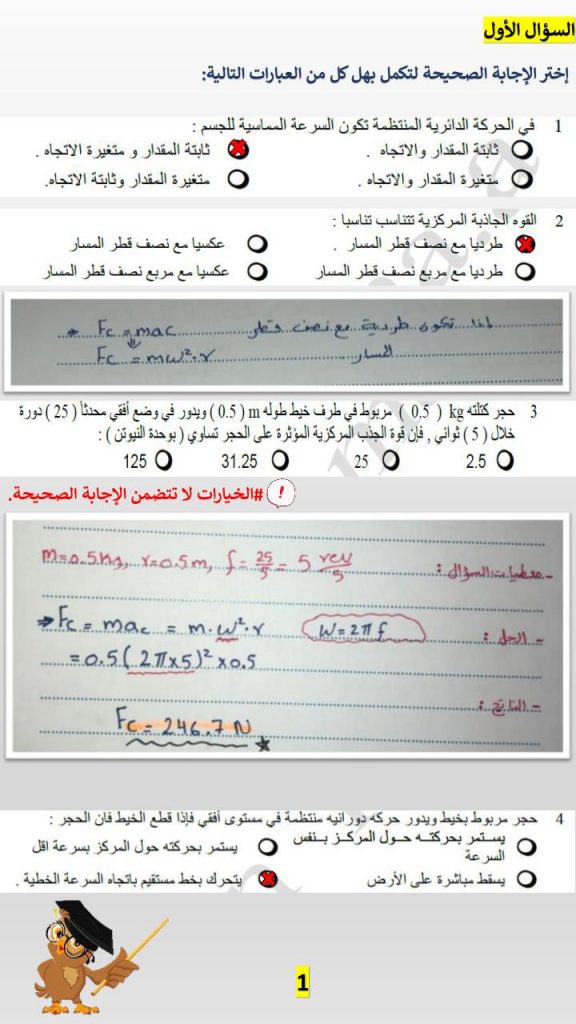 السؤال الأول
إختر الإجابة الصحيحة لتكمل بهل كل من العبارات التالية:
1 في الحركة الدائرية المنتظمة تكون السرعة المماسية للجسم :
ثابتة المقدار والاتجاه . ثابتة المقدار و متغيرة الاتجاه .
متغيرة المقدار والاتجاه . متغيرة المقدار وثابتة الاتجاه.
2 القوه الجاذبة المركزية تتناسب تناسبا :
طرديا مع نصف قطر المسار . عكسيا مع نصف قطر المسار
طرديا مع مربع نصف قطر المسار عكسيا مع مربع نصف قطر المسار
لذا تكون طردية مع نصف قطر Fc = mac
المسار Fc = mω².r
3 حجر كتلته kg ( 0.5 ) مربوط في طرف خيط طوله m ( 0.5 ) ويدور في وضع أفقي محدثاً ( 25 ) دورة
خلال ( 5 ) ثواني , فإن قوة الجذب المركزية المؤثرة على الحجر تساوي ( بوحدة النيوتن ) :
2.5 25 31.25 125
! #الخيارات لا تتضمن الإجابة الصحيحة.
- معطيات السؤال : m=0.5Kg, r=0.5m, f= 25/5 = 5 rev/s
- الحل : ω=2πf Fc = mac = m.ω².r
=0.5(2π×5)²×0.5
- الناتج :
Fc = 246.7 N
4 حجر مربوط بخيط ويدور حركه دورانيه منتظمة في مستوى أفقي فإذا قطع الخيط فان الحجر :
يستمر بحركته حول المركز بنفس السرعة يستمر بحركته حول المركز بسرعة اقل
يسقط مباشرة على الأرض يتحرك بخط مستقيم باتجاه السرعة الخطية .
1